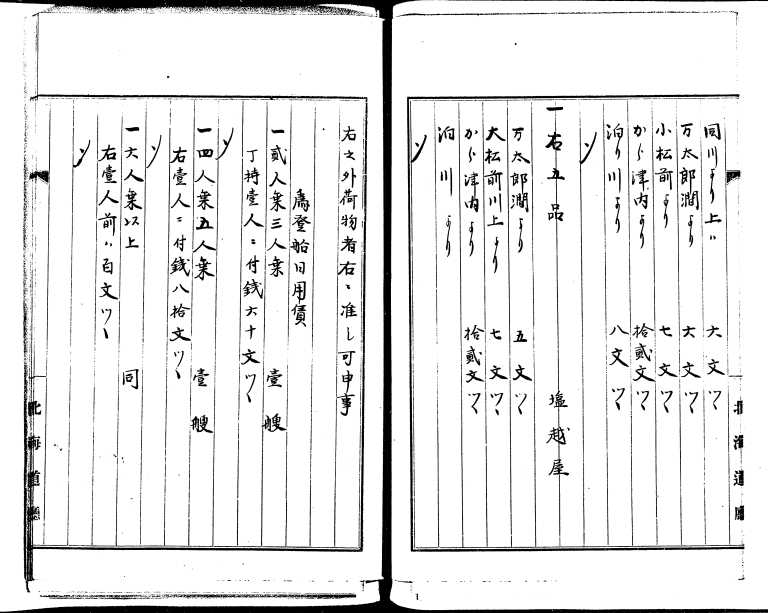 同川より上ハ 六文ツヽ
万太郎澗より 六文ツヽ
小松前より 七文ツヽ
から津内より 拾貳文ツヽ
泊り川より 八文ツヽ
〆
一右五品 塩越屋
万太郎澗より 五文ツヽ
大松前川上より 七文ツヽ
から津内より 拾貳文ツヽ
泊川より
〆
右之外荷物者右ニ准し可申事
為登船日用賃
一貳人乗三人乗 壹艘
丁持壹人ニ付銭六十文ツヽ
〆
一四人乗五人乗 壹艘
右壹人ニ付銭八拾文ツヽ
〆
一六人乗以上 同
右壹人前ハ百文ツヽ
〆
北海道廳
北海道廳